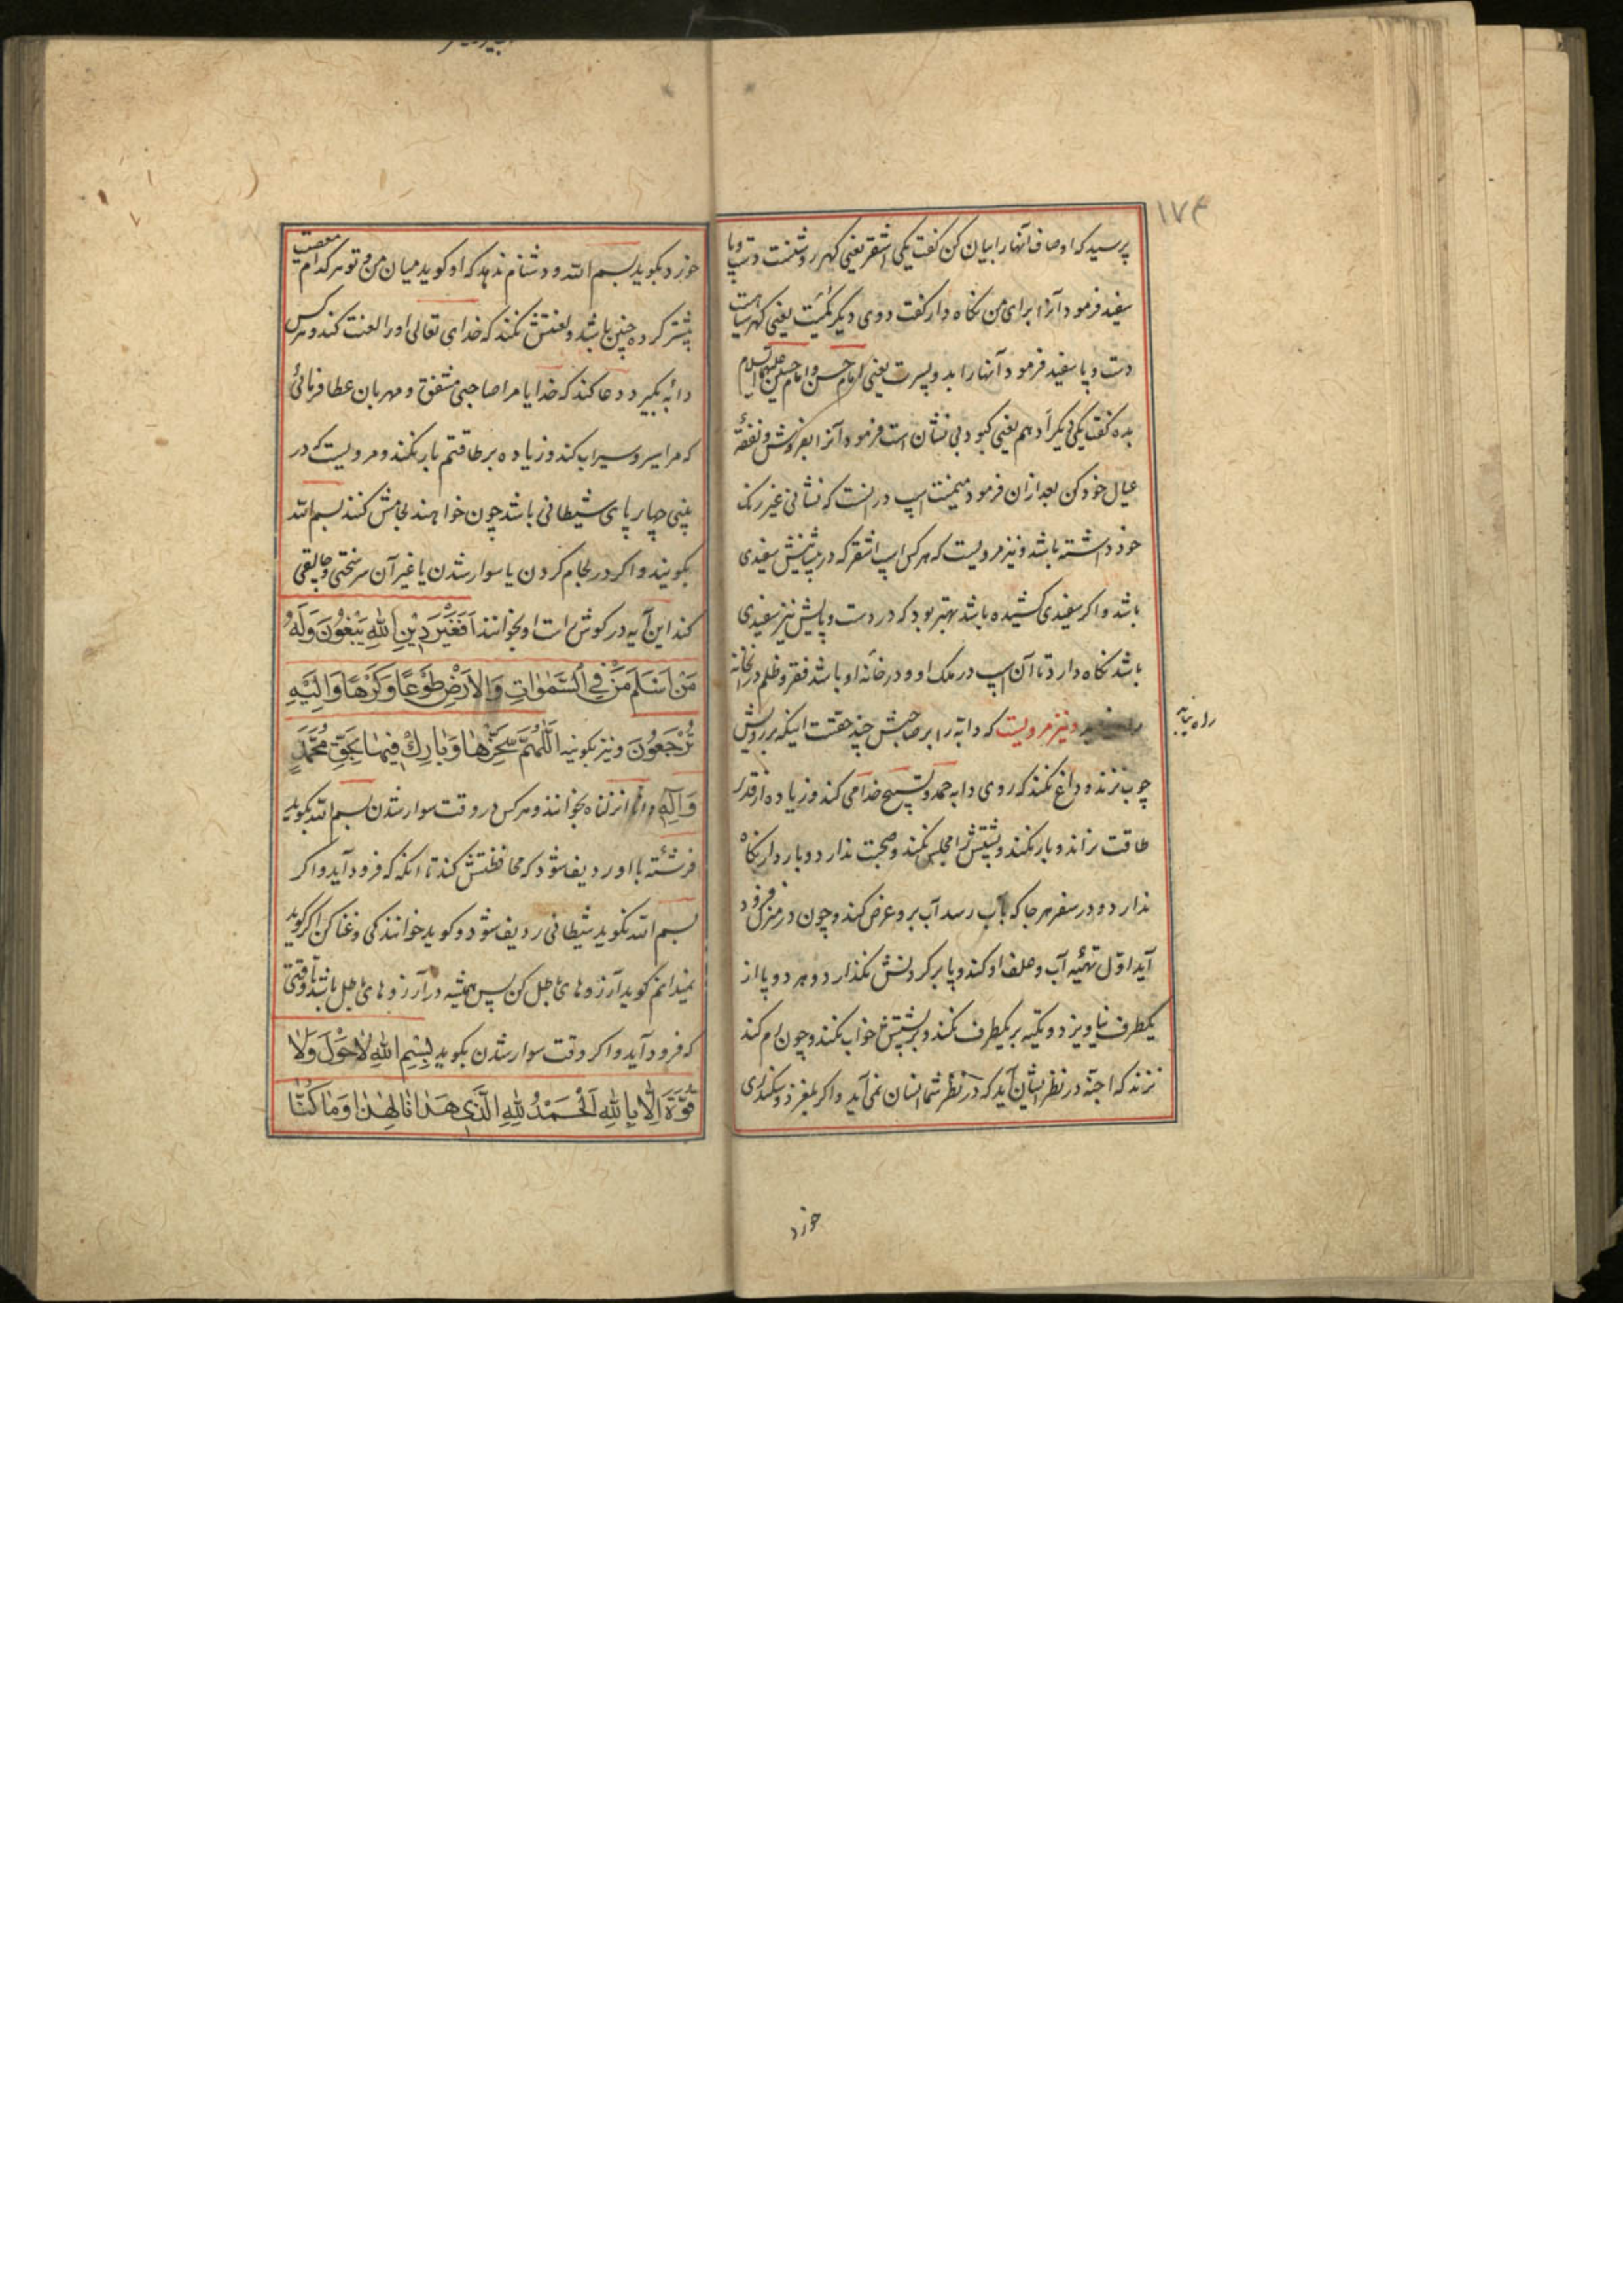 ۱۷۴
پرسید که اوصاف آنها را بیان کن گفت یکی اشقر یعنی کهر روشنست دست و پا
سفید فرمود آنرا برای من نگاه دار گفت دوی دیگر کُمَیت یعنی کهر سیاهست
دست و پا سفید فرمود آنها را بدو پسرت یعنی امام حسن و امام حسین علیهما السلام
بده گفت یکی دیگر اَدهم یعنی کبود بی نشان است فرمود آنرا بفروش و نفقهٔ
عیال خود کن بعد ازان فرمود میمنت اسپ درانست که نشانی غیر رنگ
خود داشته باشد و نیز مرویست که هر کس اسپ اشقر که در پیشانیش سفیدی
باشد و اگر سفیدی کشیده باشد بهتر بود که در دست و پایش نیز سفیدی
باشد نگاه دارد تا آن اسپ در ملک او و در خانهٔ او باشد فقر و ظلم در آنخانه
و نیز مرویست که دابه را بر صاحبش چند حقست اینکه بر رویش
راه نیابد
چوب نزند و داغ نکند که روی دابه حمد و تسبیح خدا می کند و زیاده از قدر
طاقت نراند و بار نکند و پشتش را مجلس نکند و صحبت ندارد و بار دار نگاه
ندارد و در سفر هر جا که بآب رسد آب برو عرض کند و چون در منزل فرود
آید اوّل تهیّه آب و علف او کند و پا بر گردنش نگذارد و هر دو پا از
یکطرف نیاویزد و تکیه بر یکطرف نکند و بر پشتش خواب نکند و چون رم کند
نزند که اجنّه در نظر ایشان آید که در نظر شما انسان نمی آید و اگر بلغزد و سکندری
خورد
خورد بگوید بسم الله و دشنام ندهد که او گوید میان من و تو هر کدام معصیت
بیشتر کرده چنین باشد و لعنتش نکند که خدای تعالی او را لعنت کند و هر کس
دابه بگیرد دعا کند که خدایا مرا صاحبی مشفق و مهربان عطا فرمائی
که مرا سیر و سیراب کند و زیاده بر طاقتم بار نکند و مرویست که در
بینی چهار پای شیطانی باشد چون خواهند لجامش کنند بسم الله
بگویند و اگر در لجام کردن یا سوار شدن یا غیر آن سرسختی و چالیقی
کند این آیه در گوش راست او بخوانند اَفَغَيْرَ دِيْنِ اللهِ يَبْغُوْنَ وَلَهُ
مَنْ اَسْلَمَ مَنْ فِي السَّمٰوٰاتِ وَالْاَرْضِ طَوْعًا وَ كَرْهًا وَ اِلَيْهِ
تُرْجَعُوْنَ و نیز بگویند اَللّٰهُمَّ سَخِّرْهٰا وَ بٰارِكْ فِيهٰا بِحَقِّ مُحَمَّدٍ
وَ آلِهِ و انا انزلناه بخوانند و هر کس در وقت سوار شدن بسم الله بگوید
فرشته با او ردیف شود که محافظتش کند تا انکه که فرود آید و اگر
بسم الله نگوید شیطانی ردیف شود و گوید خوانندگی و غنا کن اگر گوید
نمیدانم گوید آرزوهای باطل کن پس همیشه در آرزوهای باطل باشد تا وقتی
که فرود آید و اگر وقت سوار شدن بگوید بِسْمِ اللهِ لٰا حَوْلَ وَ لٰا
قُوَّةَ اِلّٰا بِاللهِ اَلْحَمْدُ لِلهِ الَّذِي هَدٰانٰا لِهٰذٰا وَ مٰا كُنّٰا